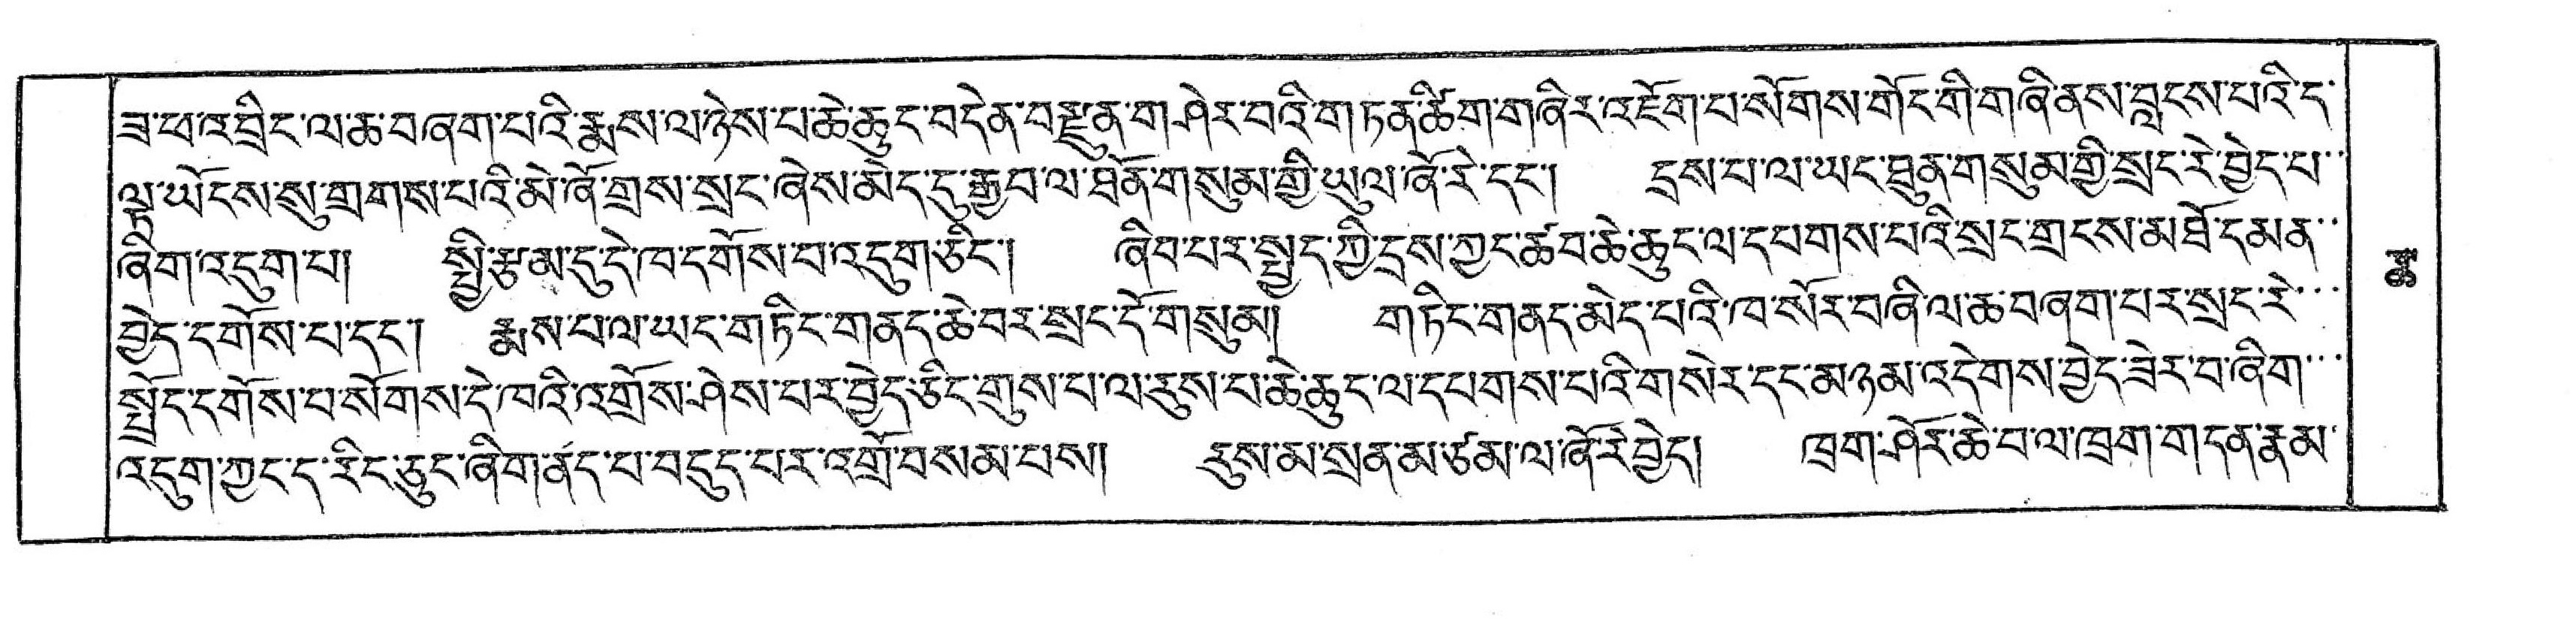 ཟ་ཕ་འབྲིང་ལ་ཆ་བཞག་པའི་རྨས་ལ་ཉེས་པ་ཆེ་ཆུང་བདེན་བརྫུན་ག་ཤེར་བའི་གཏན་ཚིག་གཞིར་འཇོག་པ་སོགས་གོང་གི་གཞི་ནས་བླངས་པའི་ད་
ལྟ་ཡོངས་སུ་གྲགས་པའི་མེ་ཞོ་གྲས་སྲང་ཞེས་མེད་དུ་རྒྱབ་ལ་ཐོན་གསུམ་གྱི་ཡུལ་ཞོ་རེ་དང་། དྲས་པ་ལ་ཡང་ཐུན་གསུམ་གྱི་སྲང་རེ་བྱེད་པ་
ཞིག་འདུག་པ། སྤྱི་རྩམ་དུ་དེ་ཁ་དགོས་པ་འདུག་ཅིང་། ཞིབ་པར་སྤྱད་ཀྱི་དྲས་ཀྱང་ཚབ་ཆེ་ཆུང་ལ་དཔགས་པའི་སྲང་གྲངས་མ་ཐོ་དམན་
བྱེད་དགོས་པ་དང་། རྨས་པ་ལ་ཡང་གཏིང་གནད་ཆེ་བར་སྲང་དོ་གསུམ། གཏིང་གནད་མེད་པའི་ཁ་སོར་བཞི་ལ་ཆ་བཞག་པར་སྲང་རེ་
སྤྲོད་དགོས་པ་སོགས་དེ་ཁའི་འགྲོས་ཤེས་པར་བྱེད་ཅིང་གུས་པ་ལ་རུས་པ་ཆེ་ཆུང་ལ་དཔགས་པའི་གསེར་དང་མཉམ་འདེགས་བྱེད་ཟེར་བ་ཞིག་
འདུག་ཀྱང་ད་རིང་ཅུང་ཞིག་ནད་པ་བདུད་པར་འགྲོ་བསམ་པས། རུས་མ་སྲན་མ་ཙམ་ལ་ཞོ་རེ་བྱེད། ཁྲག་ཤོར་ཆེ་བ་ལ་ཁྲག་གདན་རྣམ་